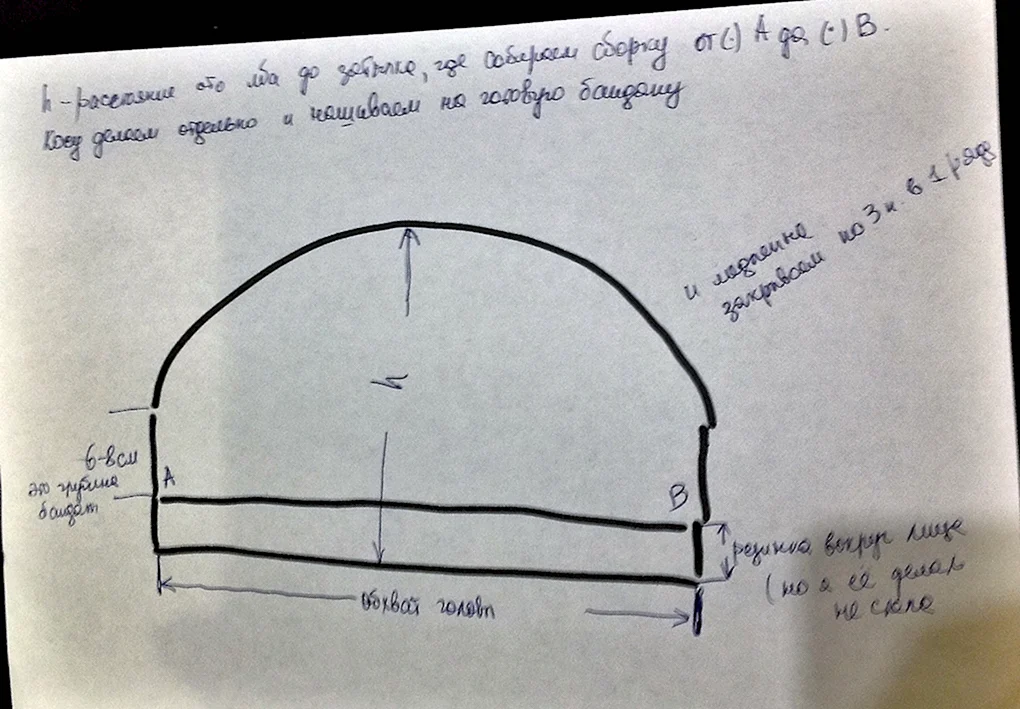 h - расстояние ото лба до затылка, где собираем сборку от (·) А до (·) В.
Косу делаем отдельно и нашиваем на готовую бандану
и макушка
закрываем по 3 п. в 1 ряде
h
6-8 см
это глубина
бандат
А
В
резинка вокруг лица
(но я её делал
не стала
обхват головы